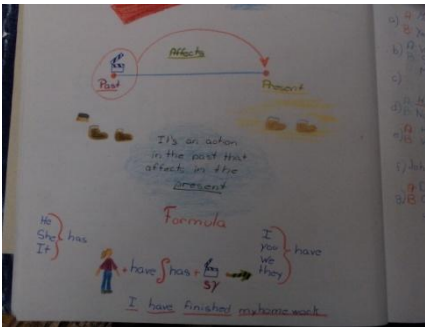 Affects
Past
Present
It's an action
in the past that
affects in the
present
Formula
He
She
It
has
I
you
we
they
have
+ have / has +
I have finished my home work
a)
b)
c)
d)
e)